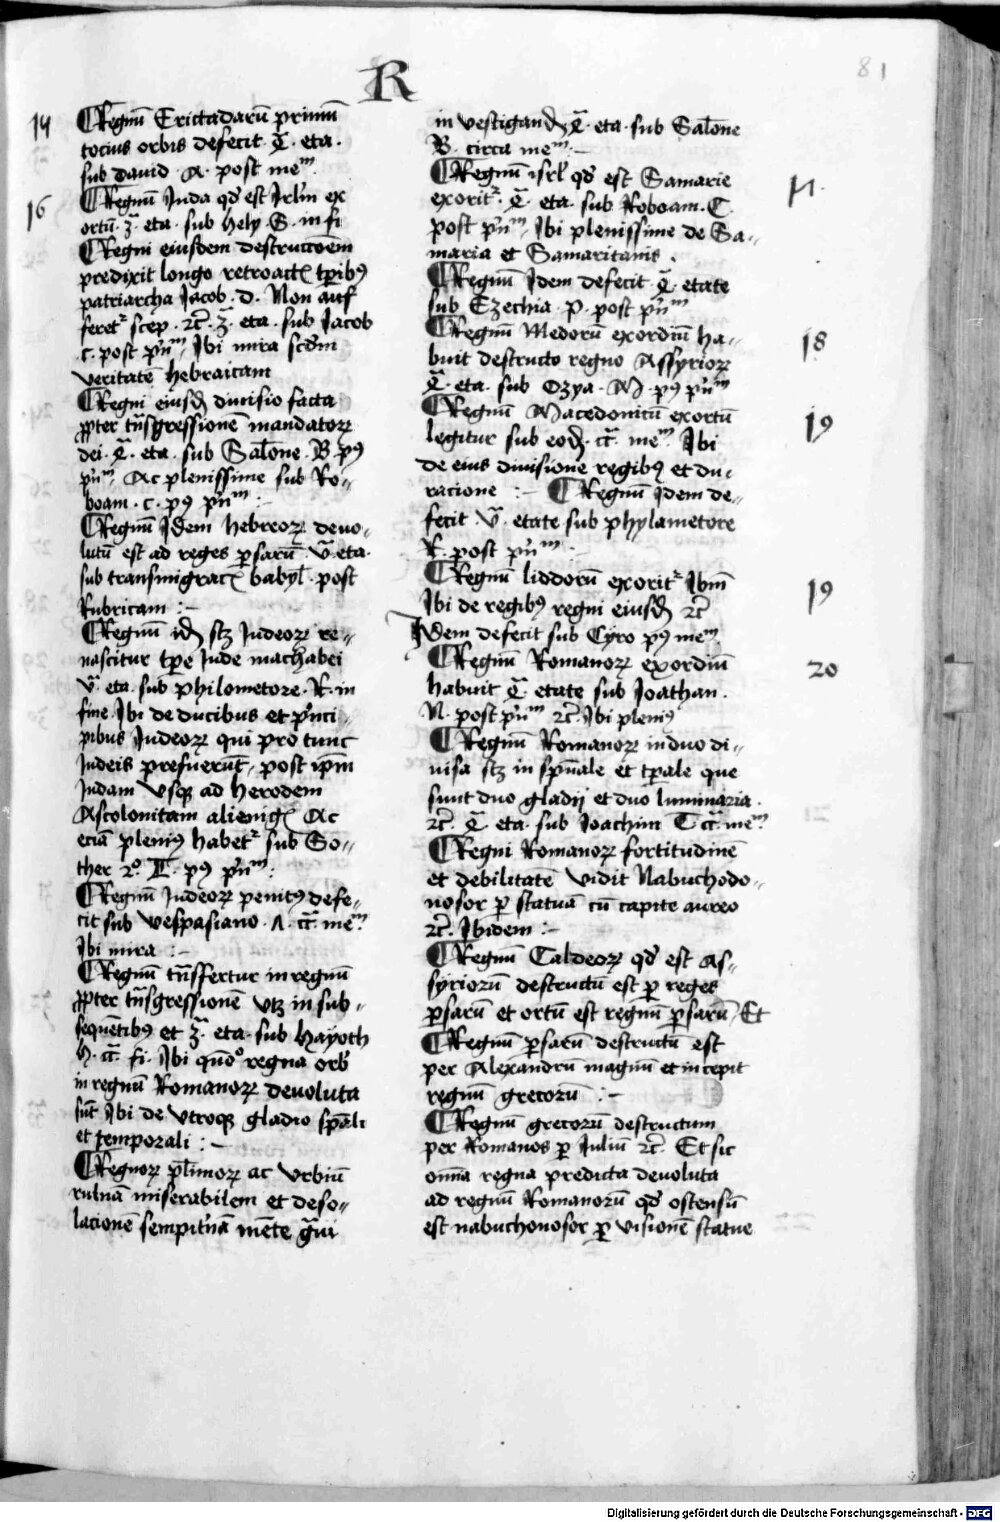 R
81
14
¶Regnū Erictadarū primū
tocius orbis defecit. q̄. eta.
sub david A. post meᵐ.
16
¶Regnū Juda qd̓ est Jrlm̄ ex
ortū. 3ᵃ. eta. sub hely. S. in fi
¶Regni eiusdem destruccōem
predixit longo retroact̄ tp̄ibꝰ
patriarcha Jacob. d. Non auf
feretʳ scep. ⁊c̄. 3ᵃ. eta. sub Jacob
c. post pn̄ᵐ, Jbi mira scd̄m
veritatē hebraicam
¶Regni eiusd̄ diuisio facta
ꝓpter tn̄sgressionē mandatoꝝ
dei. q̄. eta. sub Salōne. B. pꝰ
pn̄ᵐ. Ac plenissime sub Ro-
boam. c. pꝰ pn̄ᵐ :-
¶Regnū Jdem hebreoꝝ deuo-
lutū est ad reges ꝑsarū. v̄. eta.
sub transmigrac̄ babyl̄. post
Rubricam :-
¶Regnū id̄ scz Judeoꝝ re-
nascitur tp̄e Jude machabei
v̄. eta. sub philometore. R. in
fine Jbi de ducibus et p̄nci-
pibus Judeoꝝ qui pro tunc
Judeis prefuerūt, post ip̄m
Judam vsqꝫ ad herodem
Ascolonitam alieniḡ Ac
eciā pleniꝰ habetʳ sub So-
ther 2ᵒ. pꝰ pn̄ᵐ :
¶Regnū Judeoꝝ penitꝰ defe-
cit sub vespasiano. A. cc̄. meᵐ.
Jbi mira :-
¶Regnū tn̄sfertur in regnū
ꝓpter tn̄sgressionē vtꝫ in sub-
sequētibꝰ et 3ᵃ. eta. sub hayoth
h. cc̄. fi. Jbi quōᵒ regna orb̓
in regnū Romanoꝝ deuoluta
sūt Jbi de vtroqꝫ gladio spāli
et temporali :-
¶Regnoꝝ pl̄imoꝝ ac vrbiū
ruinā miserabilem et deso-
lacionē sempitn̄ā mēte gūi
in vestigand̄ q̄. eta. sub Salōne
B. circa meᵐ. -
17
¶Regnū isrl̓ qd̓ est Samarie
exoritʳ. q̄. eta. sub Roboam. C.
post pn̄ᵐ, Jbi plenissime de Sa-
maria et Samaritanis.
¶Regnū Jdem defecit q̄ etate
sub Ezechia. P. post pn̄ᵐ
18
¶Regnū Medorū exordiū ha-
buit destructo regno Assyrioꝝ
q̄. eta. sub Ozya. M. pꝰ pn̄ᵐ
19
¶Regnū Macedonicū exortū
legitur sub eod̄. cc̄. meᵐ. Jbi
de eius diuisione regibꝰ et du-
racione :- ¶Regnū Jdem de-
fecit v̄. etate sub phylametore
R. post pn̄ᵐ. -
19
¶Regnū liddorū exoritʳ Jbm̄
Jbi de regibꝰ regni eiusd̄ ⁊c̄
Jdem defecit sub Cyro pꝰ meᵐ
20
¶Regnū Romanoꝝ exordiū
habuit q̄. etate sub Joathan.
N. post pn̄ᵐ ⁊c̄. Jbi pleniꝰ
¶Regnū Romanoꝝ in duo di-
uisa scz in spūale et tp̄ale que
sunt duo gladij et duo luminaria.
⁊c̄. q̄. eta. sub Joachim T cc̄. meᵐ.
¶Regni Romanoꝝ fortitudinē
et debilitatē vidit Nabuchodo-
nosor ꝑ statuā cū capite aureo
⁊c̄. Jbidem :-
¶Regnū Caldeoꝝ qd̓ est As-
syriorū destructū est ꝑ reges
ꝑsarū et ortū est regnū ꝑsarū, Et
¶Regnū ꝑsarū destructū est
per Alexandrū magnū et incepit
regnū grecorū :-
¶Regnū grecorū destructum
per Romanos ꝑ Juliū ⁊c̄. Et sic
omīa regna predicta deuoluta
ad regnū Romanorū qd̓ ostensū
est nabuchonosor ꝑ visionē statue
Digitalisierung gefördert durch die Deutsche Forschungsgemeinschaft - DFG